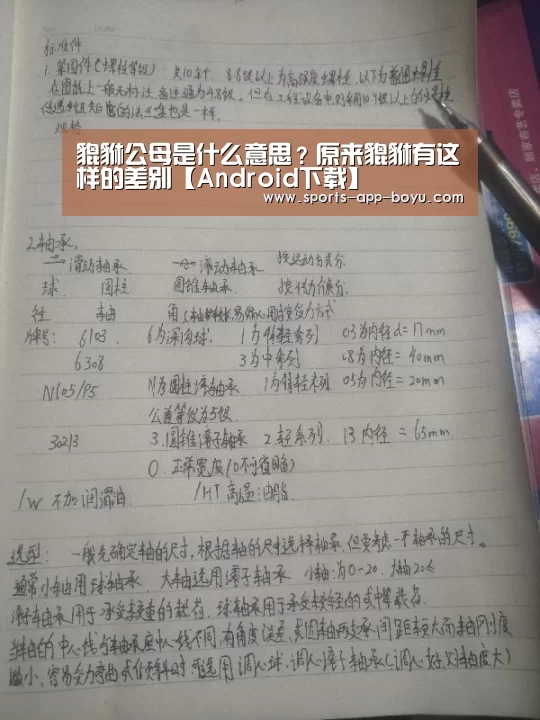 标准件
1. 紧固件(螺栓等级): 共10个 8.8级以上为高强度螺栓,以下为普通螺栓
在图纸上一般无标注
也是一样.
规格
貔貅公母是什么意思？原来貔貅有这
样的差别【Android下载】
www.sports-app-boyu.com
2. 轴承.
滑动轴承 滚动轴承 按运动方式分
球 圆柱 圆锥轴承
径 轴 角
牌号: 6103. 6为深沟球. 1为特轻系列 03为内径d=17mm
6308 3为中系列 08为内径=40mm
N105/P5 N为圆柱滚子轴承 1为特轻系列 05为内径=20mm
公差等级为5级
30213 3.圆锥滚子轴承 2.轻系列. 13内径 =65mm.
0. 正常宽度(0不可省略)
/W 不加润滑油. /HT 高温油脂.
选型: 一般先确定轴的尺寸,根据轴的尺寸选择轴承.但要考虑一下轴承的尺寸。
通常小轴用球轴承 大轴选用滚子轴承 小轴:为0-20. 大轴20≤
滚子轴承用于承受较重的载荷. 球轴承用于承受较轻的载荷.
当轴的中心线与轴承座中心线不同,有角度误差,或因轴两支承间距较大而轴刚度
偏小,容易受力弯曲或倾斜时.可选用调心球.调心滚子轴承(调心好,对轴度大)